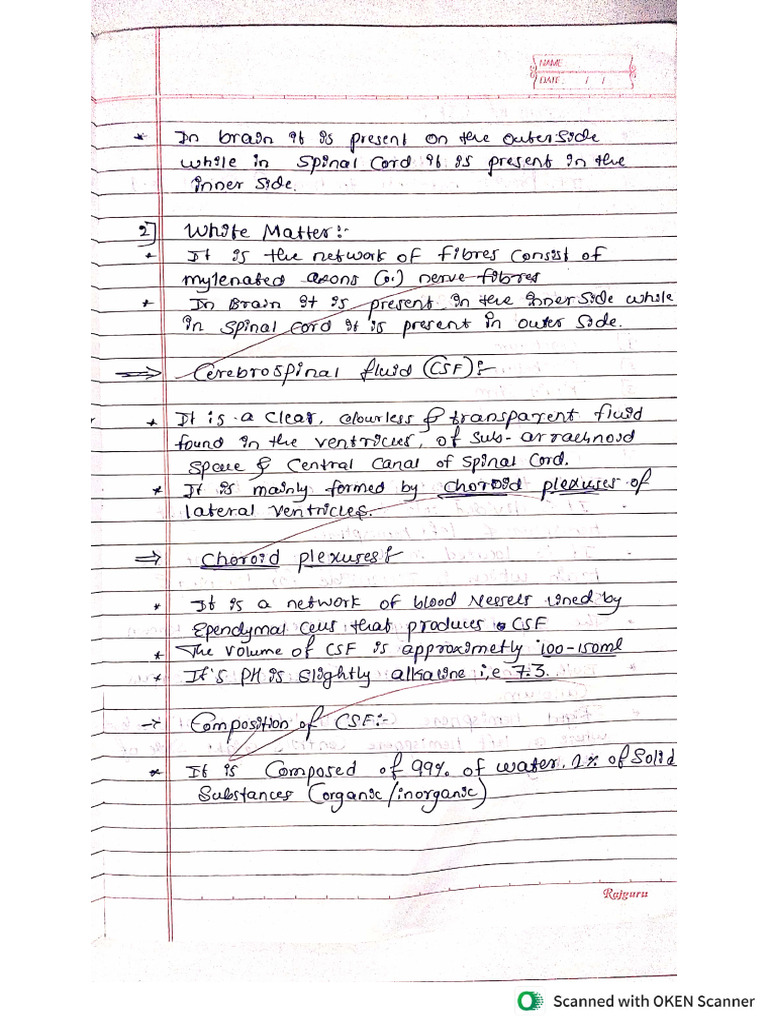 NAME
DATE / /
* In brain it is present on the outer side
while in spinal cord it is present in the
inner side.
2] White Matter:-
* It is the network of fibres consist of
mylenated axons (or) nerve fibres
* In Brain it is present in the inner side while
in spinal cord it is present in outer side.
⇒ Cerebrospinal fluid (CSF):-
* It is a clear, colourless & transparent fluid
found in the ventricles, of sub-arrachnoid
space & central canal of spinal cord.
* It is mainly formed by choroid plexuses of
lateral ventricles.
⇒ Choroid plexuses:-
* It is a network of blood vessels lined by
Ependymal cells that produces CSF
* The volume of CSF is approximetly 100-150ml
* It's pH is slightly alkaline i,e 7.3.
→ Composition of CSF:-
* It is composed of 99% of water, 1% of solid
substances (organic/inorganic)
Rajguru
Scanned with OKEN Scanner